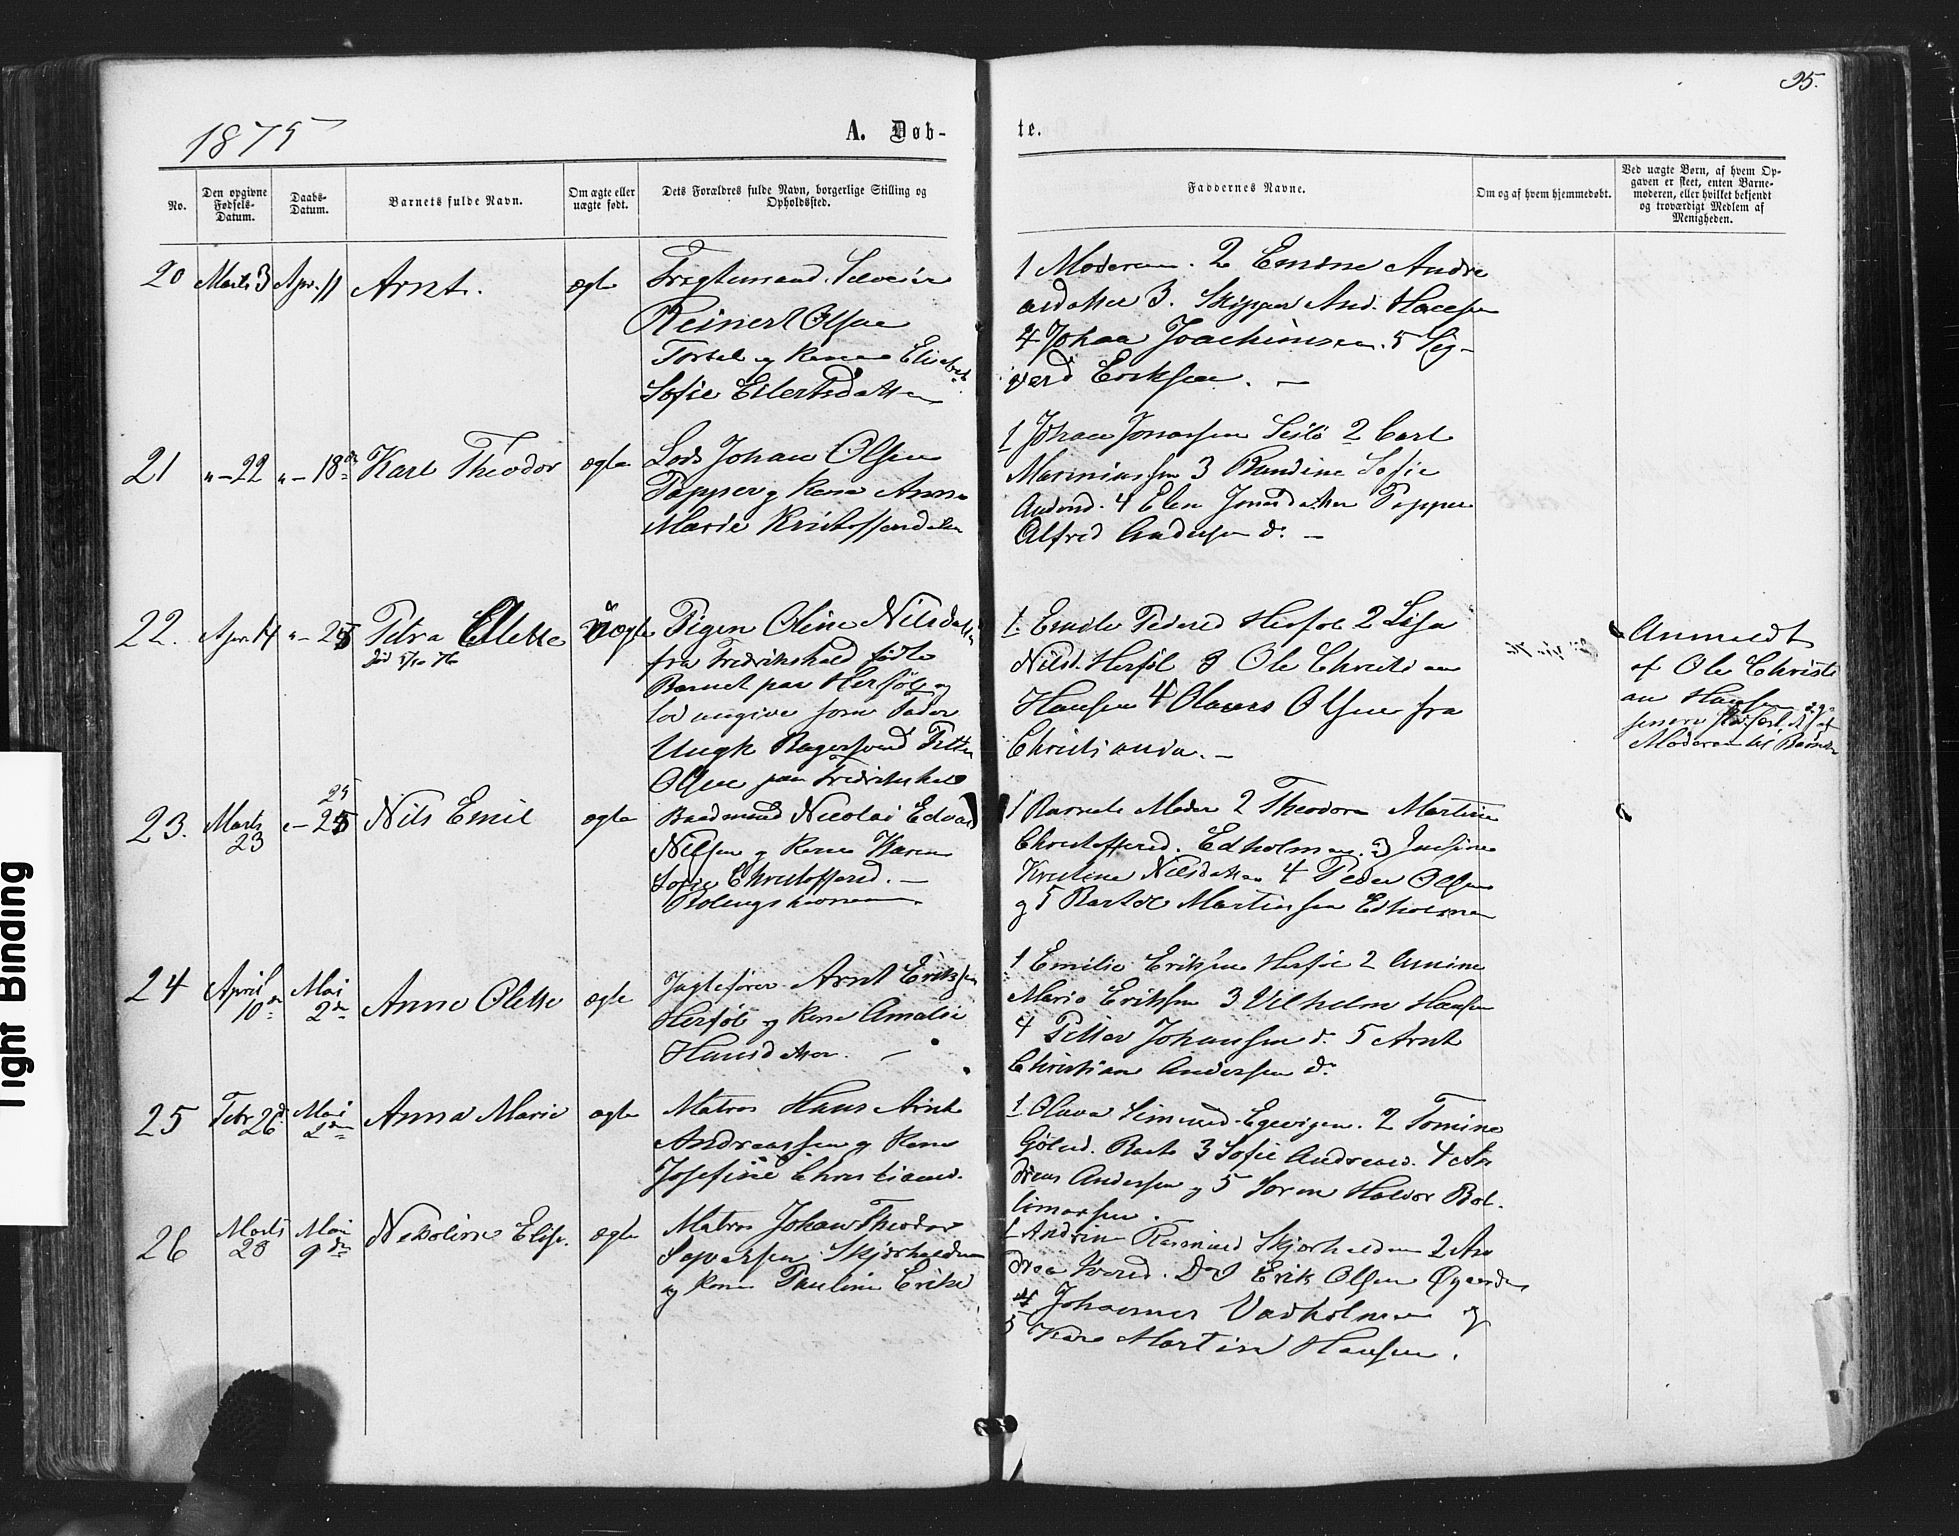 95.
1875
A. Døb-
te.
No.
Den opgivne Fødsels-Datum.
Daabs-Datum.
Barnets fulde Navn.
Om ægte eller uægte født.
Dets Forældres fulde Navn, borgerlige Stilling og Opholdssted.
Faddernes Navne.
Om og af hvem hjemmedøbt.
Ved uægte Børn, af hvem Op-
gaven er skeet, enten Barne-
moderen, eller hvilket bekjendt
og troværdigt Medlem af
Menigheden.
20 Marts 3 Apr. 11 Arnt. ægte
Reinert Olsen
og Kone
Sofie Eilertsdatter
1 Moderen. 2 Emine Andre
3. Skipper And. Hansen
4 Johan Joachimsen. 5 Sig-
verd Eriksen. —
21 "–22 "–18de Karl Theodor ægte
Lods Johan Olsen
Papper og Kone Anne
Marie Kristoffersdatter
1 Johan Jonassen 2 Carl
Mariniussen 3 Randine Sofie
4 Elen Jonasdatter Papper
Alfred Andersen do —
22. Apr. 14 "–25 Petra Elette uægte
død
Pigen Oline Nilsdatter
fra Fredrikshald fødte
Barnet paa Herføl og
som Fader
Ungk Bagersvend Petter
Olsen paa Fredrikshald
1. Emile Pedersd Herføl 2 Lisa
Nilsd. Herføl 3 Ole Christian
Hansen 4 Olaves Olsen fra
Christiania. —
Anmeldt
af Ole Christi
an Hansen og
senere
Moderen til Barnet
23. Marts 23 "–25 25 Nils Emil ægte
Baadsmand Nicolai Edvard
Nilsen og Kone Karen
Sofie Christoffersd. —
1 Barnets Moder 2 Theodora Martine
Christoffersd. Edholmen. 3 Josefine
Kristine Nilsdatter 4 Peder Olsen
og 5 Bartol Martinsen Edholmen
24 April 10de Mai 2de Anne Olette ægte
Jagtefører Arnt Eriksen
Herføl og Kone Amalie
Hansdatter. —
1 Emilie Eriksen Herføl 2 Amine
Marie Eriksen 3 Vilhelm Hansen
4 Petter Johansen do 5 Arnt
Christian Andersen do
25 Febr 26d. Mai 2den Anna Marie ægte
Matros Hans Arnt
Andreassen og Kone
Josefine Christiansd.
1. Oluva Simensd. Egevigen. 2 Tomine
3 Sofie Andreasd. 4 An
dreas Andersen og 5 Soren Halvor Bot-
tlmarsen.
26 Marts 28 Mai 9de Nikoline Elise. ægte
Matros Johan Theodor
Syversen Skjærhalden
og Kone Pauline Eriks
1 Andrine Rasmusd Skjærhalden 2 An
drea Iversd. Do 3 Erik Olsen
4 Johannes Vadholmen og
5 Karl Martin Hansen.
Tight Binding